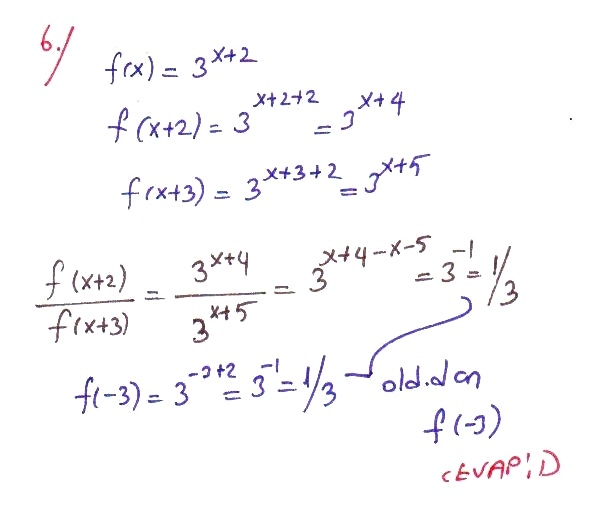 6.) f(x) = 3^x+2
f(x+2) = 3^x+2+2 = 3^x+4
f(x+3) = 3^x+3+2 = 3^x+5
f(x+2)/f(x+3) = 3^x+4/3^x+5 = 3^x+4-x-5 = 3^-1 = 1/3
f(-3) = 3^-3+2 = 3^-1 = 1/3 old.dan
f(-3)
CEVAP: D